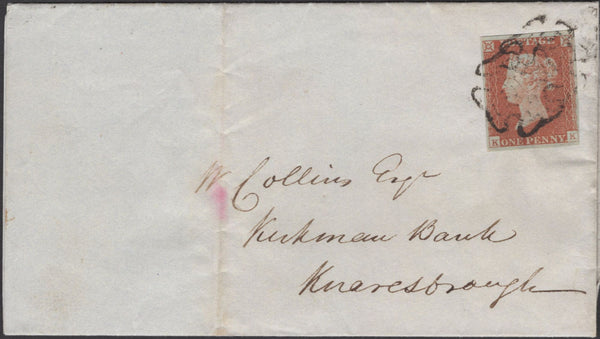 POSTAGE
K K
ONE PENNY
W Collins Esqr
Kirkman Bank
Knaresbrough